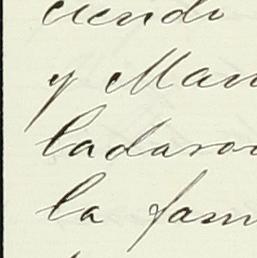 ciendo
y Man
ladaron
la fam